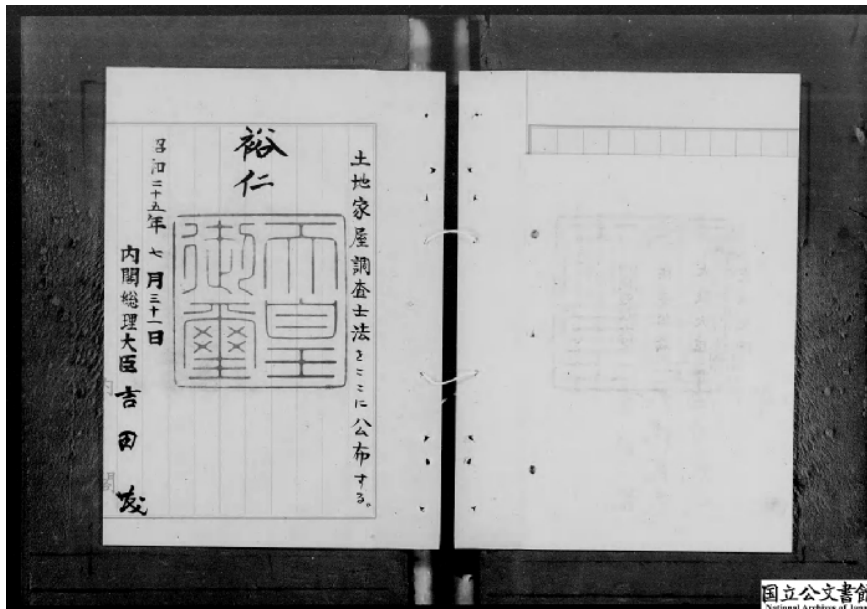 土地家屋調査士法をここに公布する。
裕仁
天皇
御璽
昭和二十五年七月三十一日
内閣総理大臣 吉田茂
内閣
国立公文書館
National Archives of J